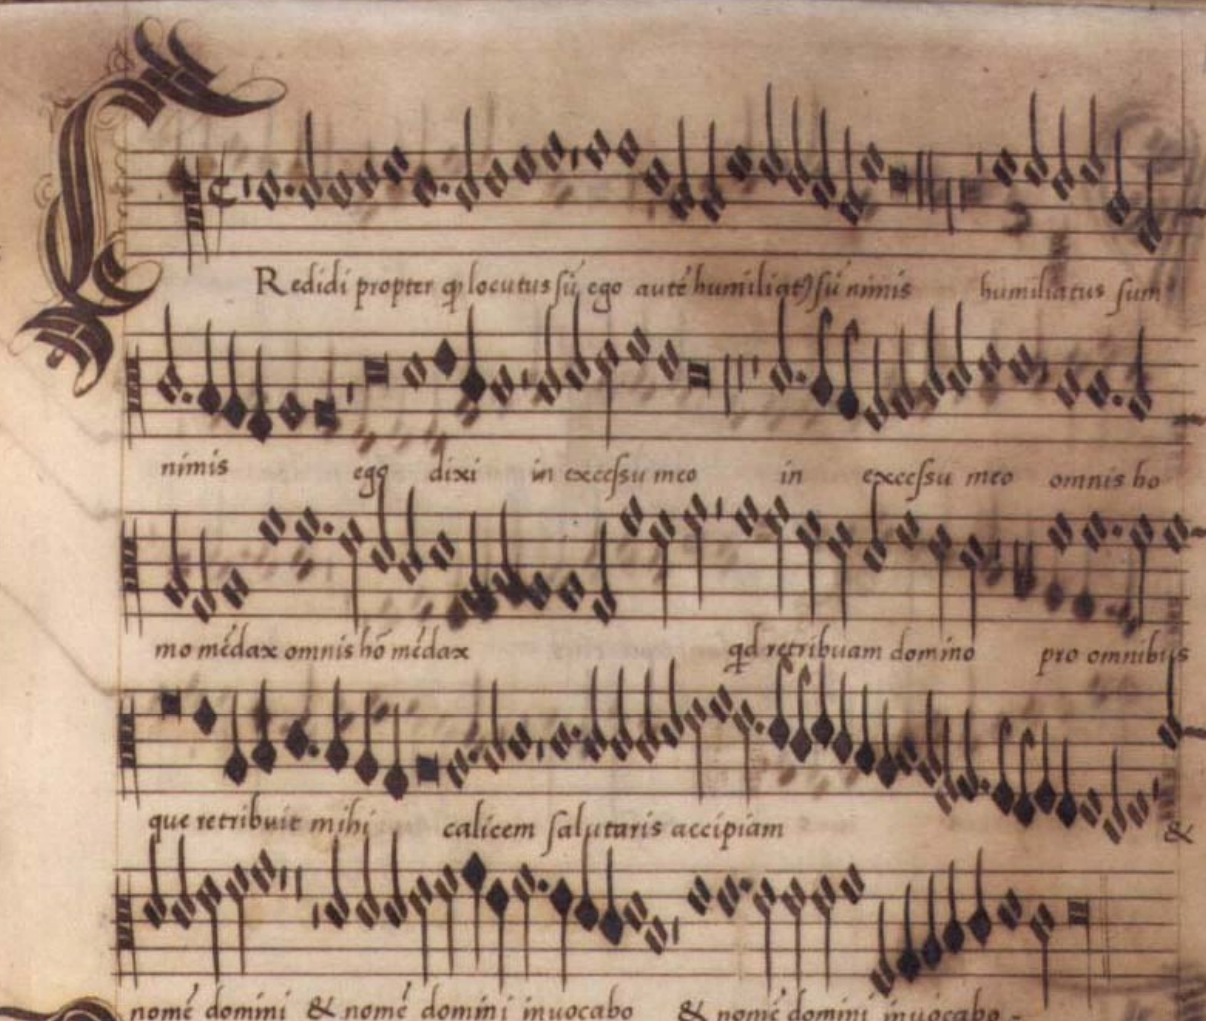 CRedidi propter ꝙ locutus sū ego autē humiliatꝰ sū nimis humiliatus sum
nimis ego dixi in excessu meo in excessu meo omnis ho
mo mēdax omnis hō mēdax qd retribuam domino pro omnibus
que retribuit mihi calicem salutaris accipiam &
nomē domini & nomē domini invocabo & nomē domini invocabo